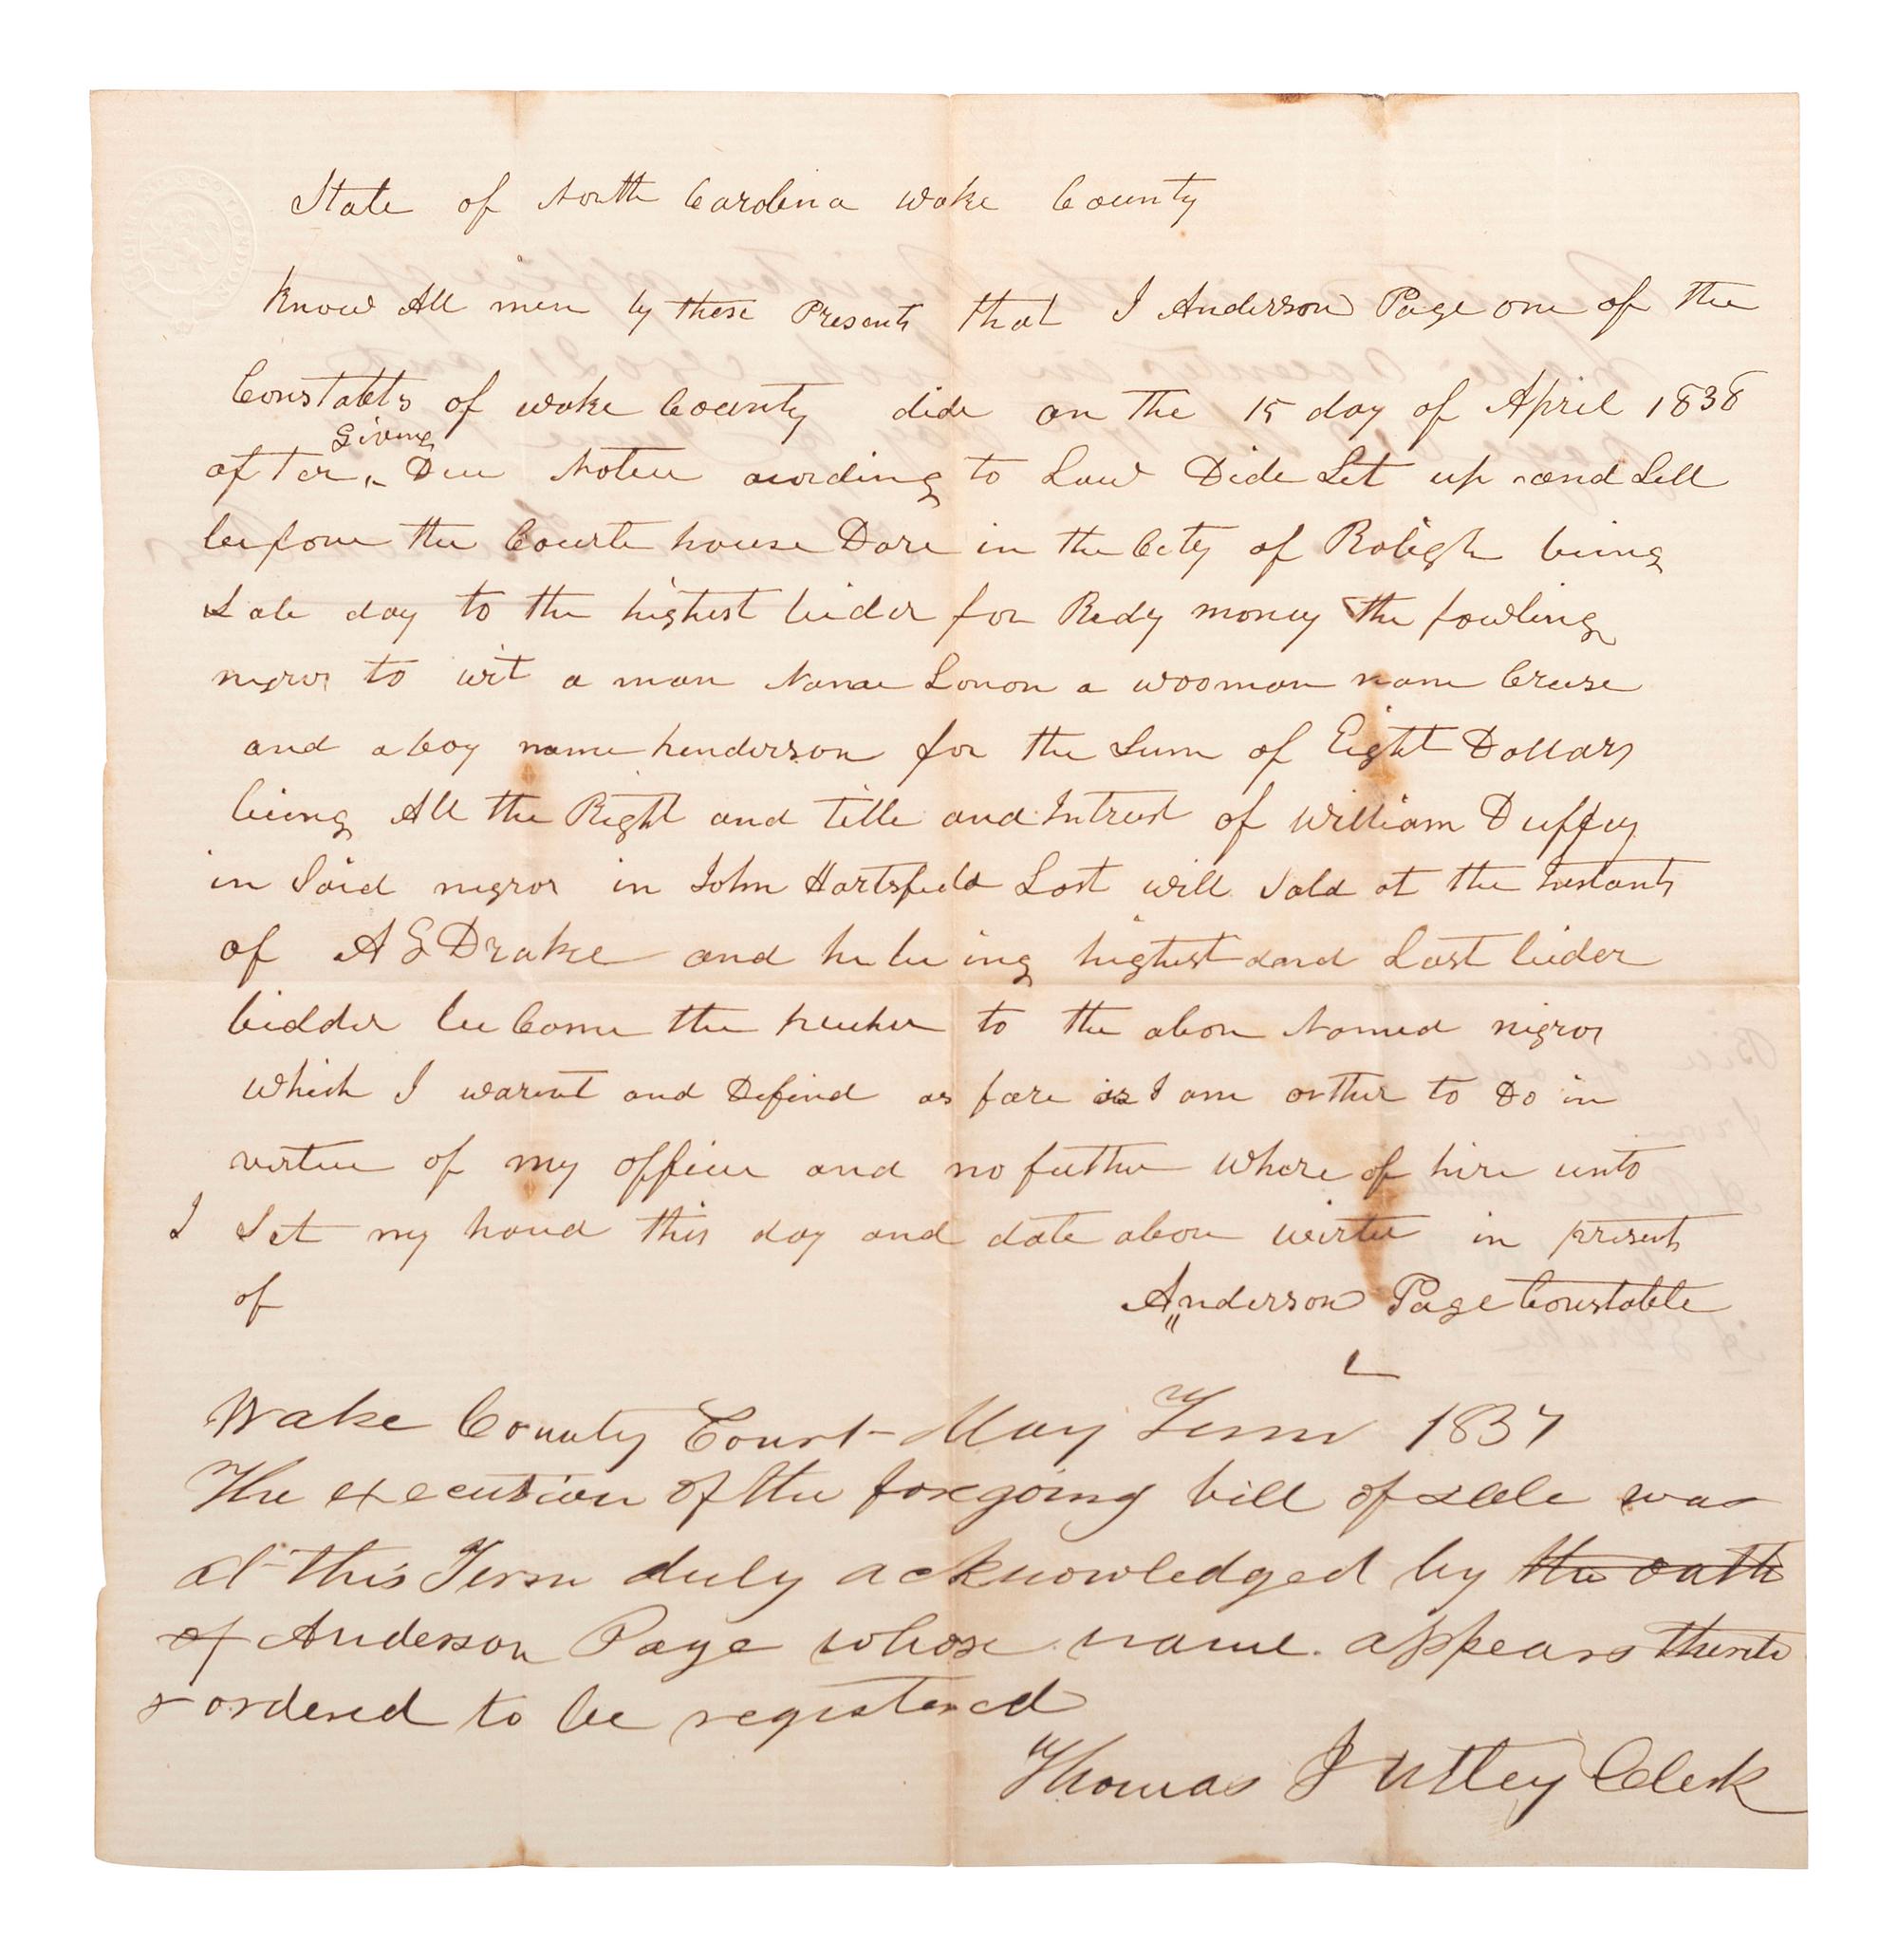 State of North Carolina Wake County
Know All men by these Presents that I Anderson Page one of the
Constables of Wake County dide on the 15 day of April 1838
Giving
after Due Notice acording to Law Dide Set up and Sell
before the Courte house Dore in the City of Roligh being
Sale day to the highest bider for Redy money the fowling
negros to wit a man Name Lonon a wooman name Cruse
and a boy name henderson for the Sum of Eight Dollars
being All the Right and title and Intrest of William Duffey
in Said negros in John Hartsfield Last will Sold at the Instants
of A G Drake and he being highest and Last bider
bidder be Come the to the above Named negros
which I warent and Defend as fare as I am orther to Do in
virtue of my office and no futher Where of hire unto
I Set my hand this day and date above in presents
of
Anderson Page Constable
Wake County Court May Term 1837
The execution of the foregoing bill of sale was
at this Term duly acknowledged by the oath
of Anderson Page whose name appears thereto
& ordered to be registered
Thomas J Utley Clerk